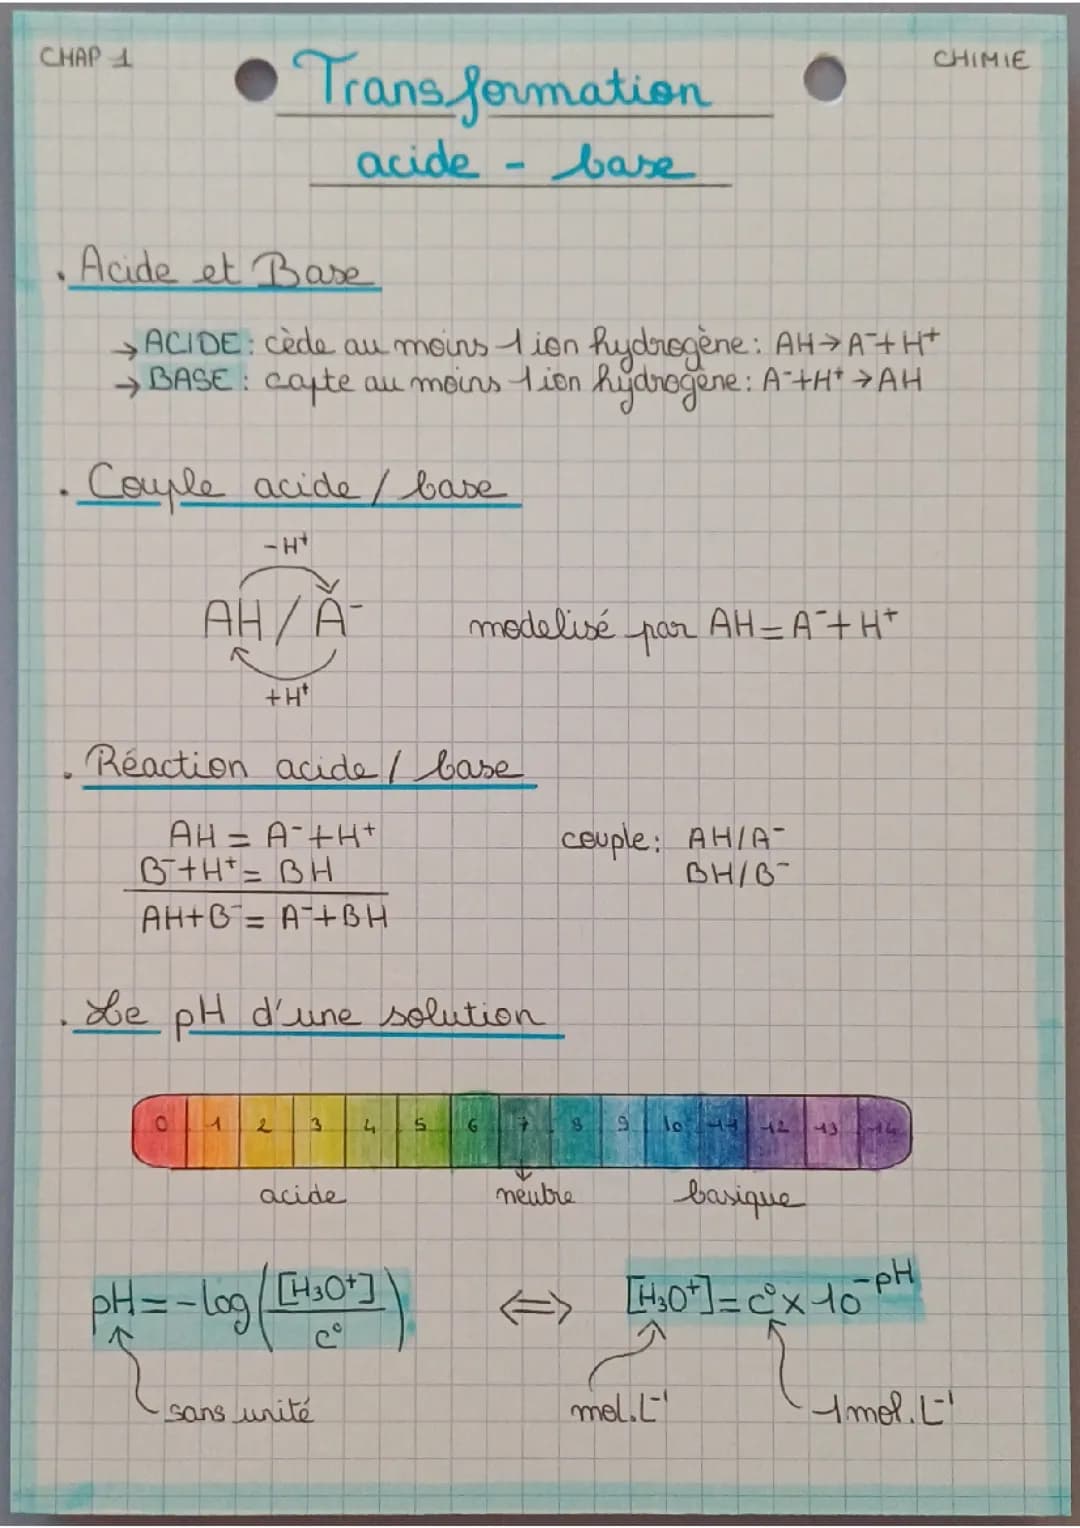 CHAP 1
CHIMIE
Transformation
acide - base
. Acide et Base
→ ACIDE : cède au moins 1 ion hydrogène : AH → A⁻ + H⁺
→ BASE : capte au moins 1 ion hydrogène : A⁻ + H⁺ → AH
. Couple acide / base
- H⁺
AH / A⁻ modelisé par AH = A⁻ + H⁺
+ H⁺
. Réaction acide / base
AH = A⁻ + H⁺ couple : AH/A⁻
B⁻ + H⁺ = BH BH/B⁻
AH + B⁻ = A⁻ + BH
. Le pH d'une solution
0 1 2 3 4 5 6 7 8 9 10 11 12 13 14
acide neutre basique
pH = -log([H₃O⁺]/c°) ⇔ [H₃O⁺] = c° x 10^-pH
sans unité mol.L⁻¹ 1 mol.L⁻¹